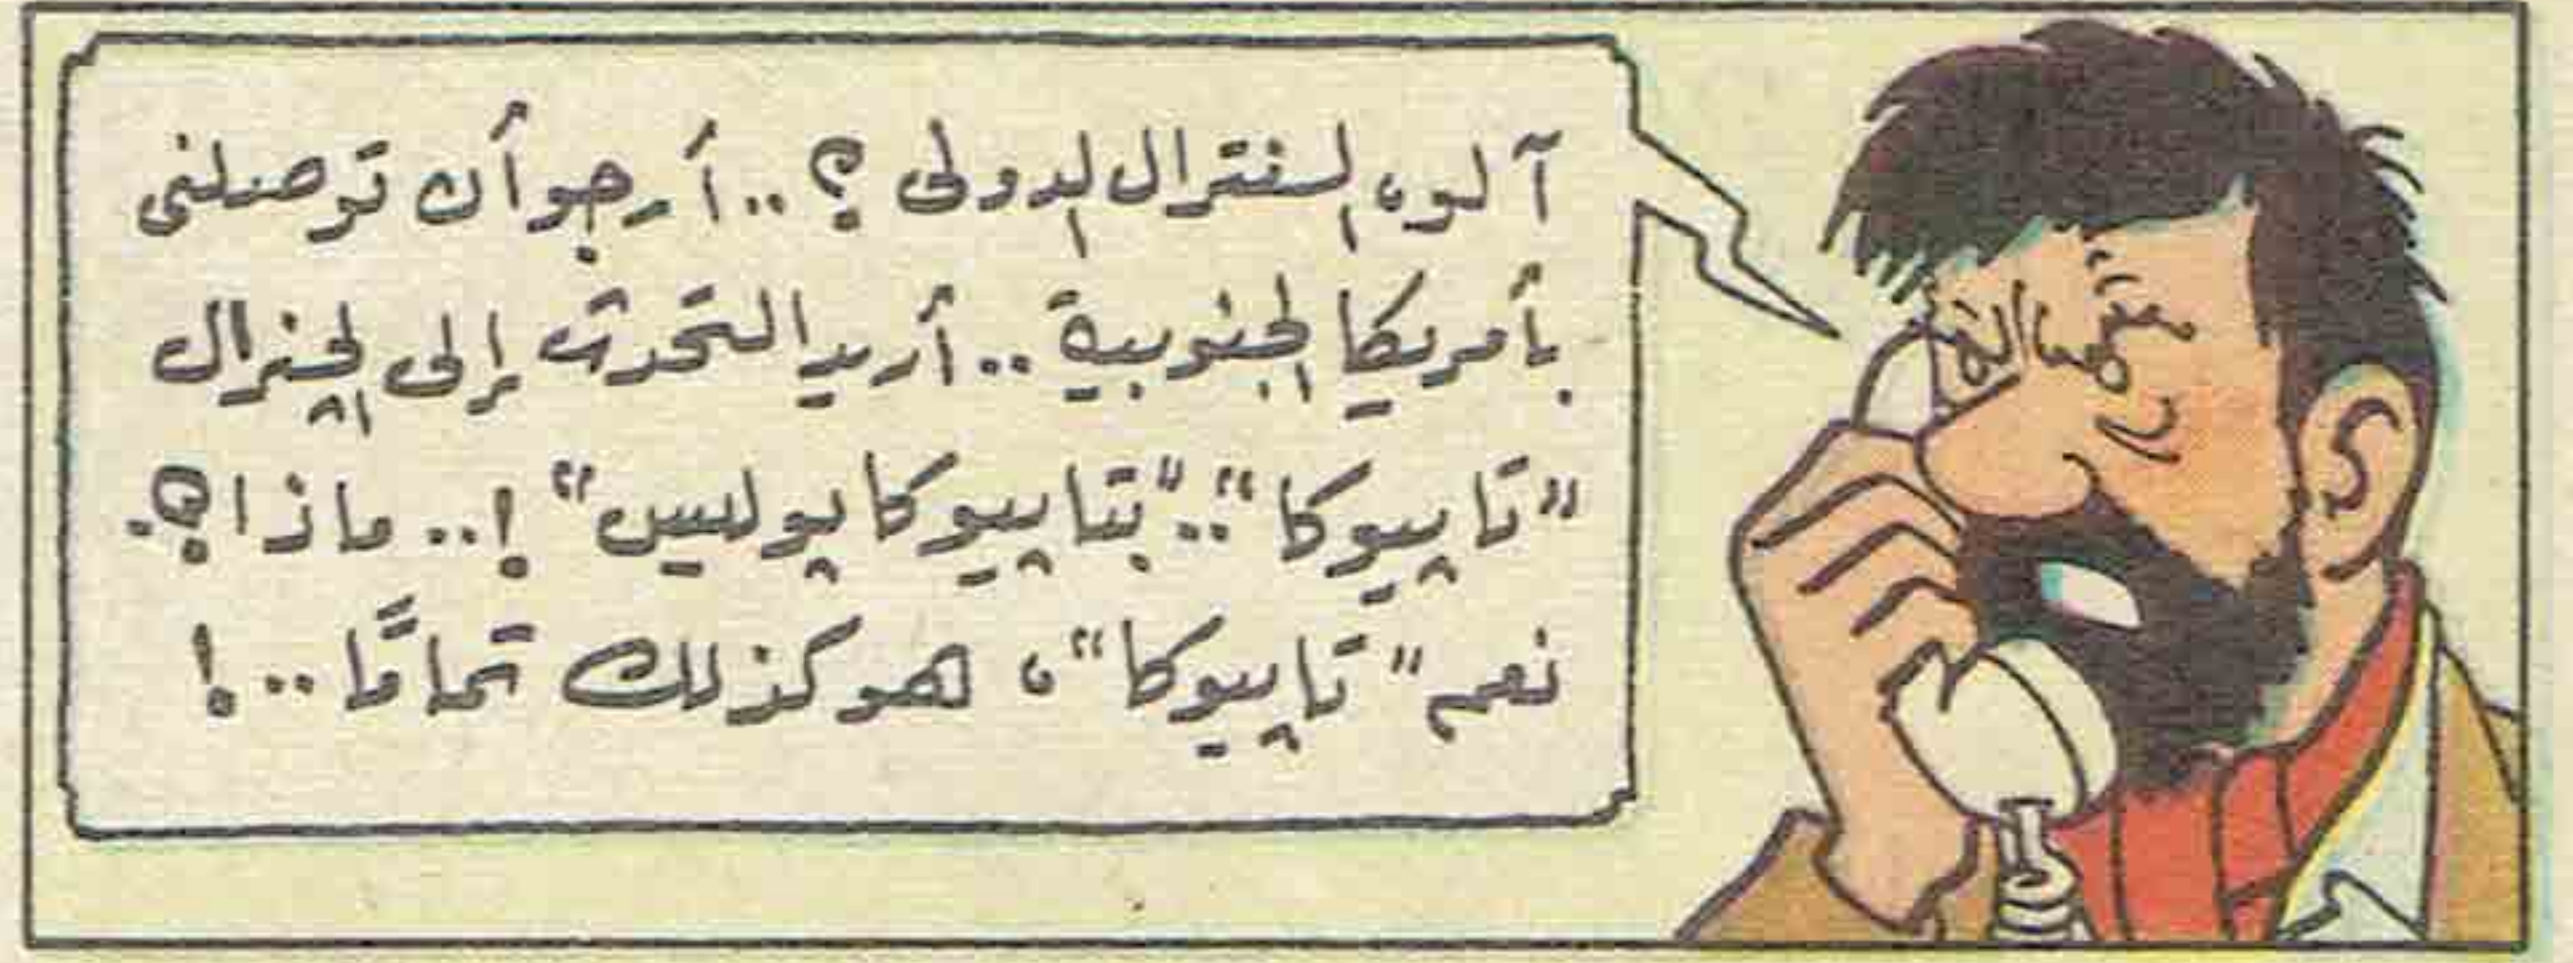 آلو، السنترال الدولى ؟.. أرجو أن توصلنى
بأمريكا الجنوبية .. أريد التحدث إلى الچنرال
"تاپيوكا".. "بتاپيوكاپوليس" !.. ماذا ؟.
نعم "تاپيوكا"، هو كذلك تمامًا .. !